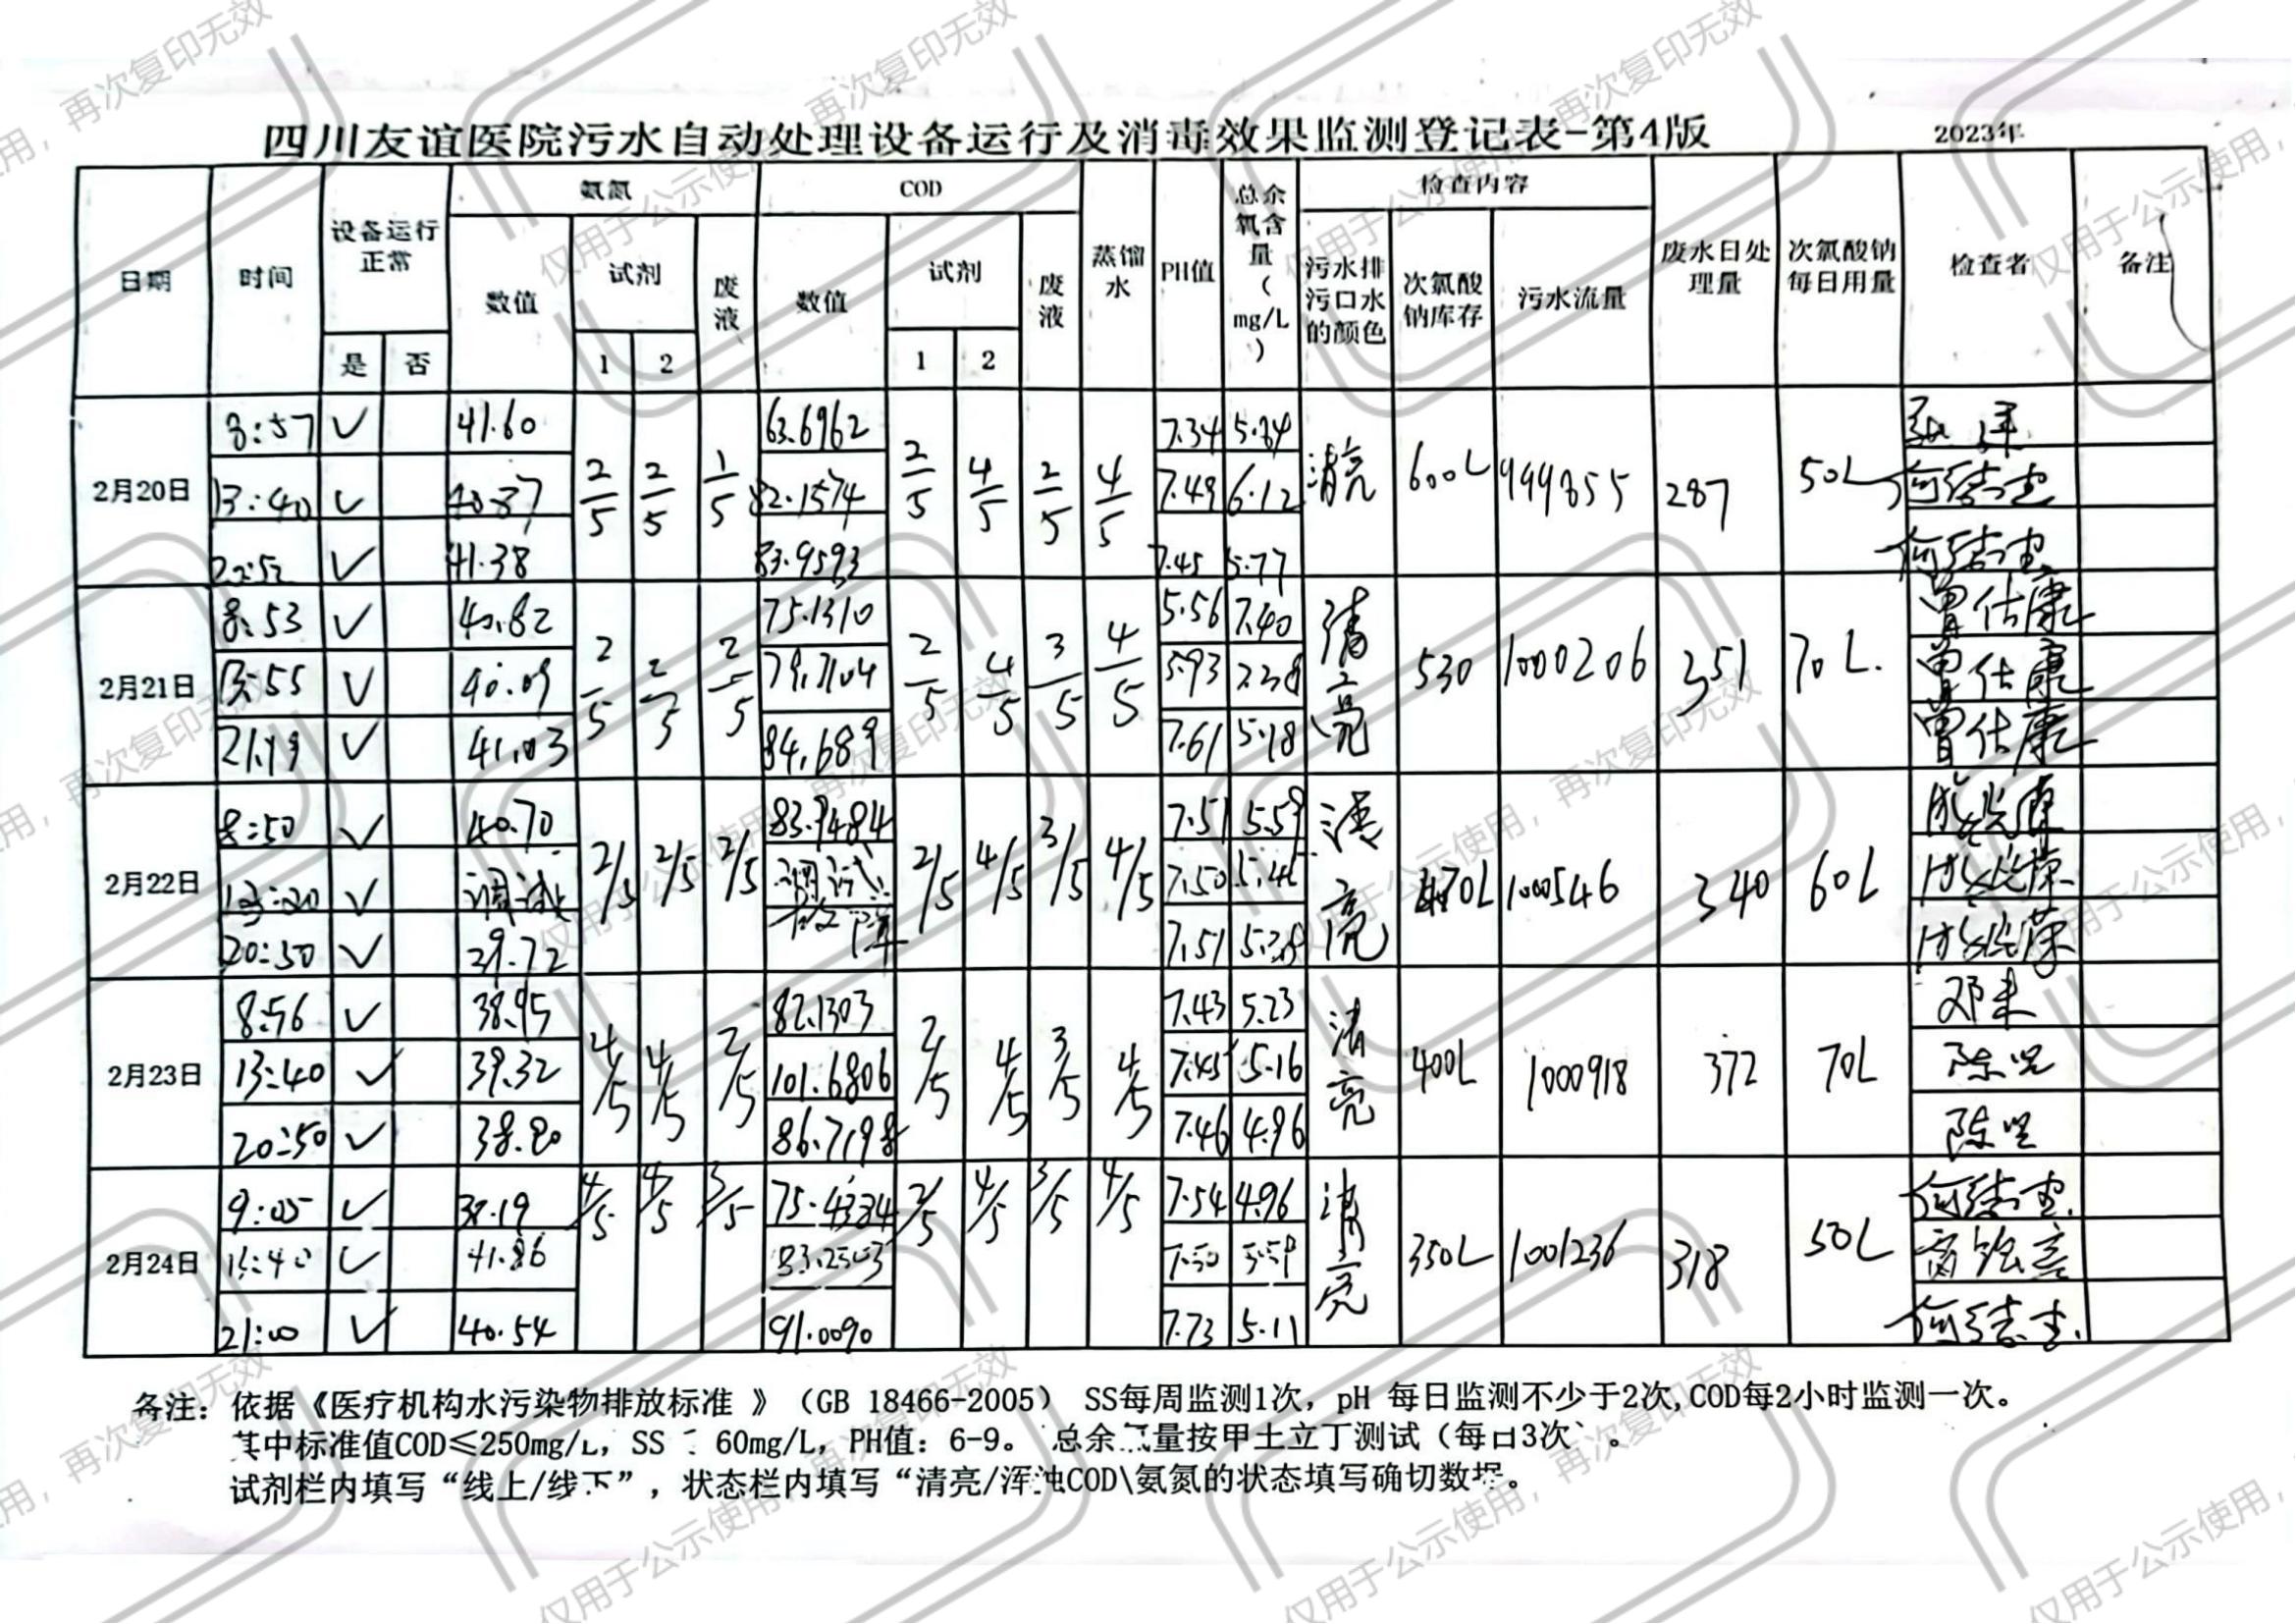 四川友谊医院污水自动处理设备运行及消毒效果监测登记表-第4版 2023年
日期 时间 设备运行正常 氨氮 COD 蒸馏水 PH值 总余氧含量(mg/L) 检查内容 废水日处理量 次氯酸钠每日用量 检查者 备注
是 否 数值 试剂 废液 数值 试剂 废液 污水排污口水的颜色 次氯酸钠库存 污水流量
1 2 1 2
2月20日 2/5 2/5 1/5 2/5 4/5 2/5 4/5 清亮 600L 999855 287 50L
8:57 ✓ 41.60 63.6962 7.34 5.84
13:40 ✓ 40.87 82.1574 7.49 6.12
22:52 ✓ 41.38 83.9593 7.45 5.77
2月21日 2/5 2/5 2/5 2/5 4/5 3/5 4/5 清亮 530 1000206 351 70L.
8:53 ✓ 40.82 75.1310 5.56 7.40 曾仕康
13:55 ✓ 40.09 79.7104 5.93 曾仕康
21:19 ✓ 41.03 84.689 7.61 5.18 曾仕康
2月22日 2/5 2/5 2/5 2/5 4/5 3/5 4/5 清亮 470L 1000546 340 60L
8:50 ✓ 40.70 83.9484 7.51 5.59
13:20 ✓ 调试 调试 7.50 5.45
20:50 ✓ 39.72 故障 7.51 5.38
2月23日 4/5 4/5 2/5 2/5 4/5 3/5 4/5 清亮 400L 1000918 372 70L
8:56 ✓ 38.95 82.1303 7.43 5.23
13:40 ✓ 39.32 101.6806 7.45 5.16
20:50 ✓ 38.80 86.7198 7.46 4.96
2月24日 4/5 4/5 3/5 2/5 4/5 3/5 4/5 清亮 350L 1001236 318 50L
9:05 ✓ 38.19 75.4334 7.54 4.96
13:40 ✓ 41.86 83.2503 7.50 5.59
21:00 ✓ 40.54 91.0090 7.73 5.11
备注：依据《医疗机构水污染物排放标准 》（GB 18466-2005） SS每周监测1次，pH 每日监测不少于2次,COD每2小时监测一次。
其中标准值COD≤250mg/L，SS 60mg/L，PH值：6-9。 总余氯量按甲土立丁测试（每日3次）。
试剂栏内填写“线上/线下”，状态栏内填写“清亮/浑浊COD\氨氮的状态填写确切数据。
仅用于公示使用，再次复印无效